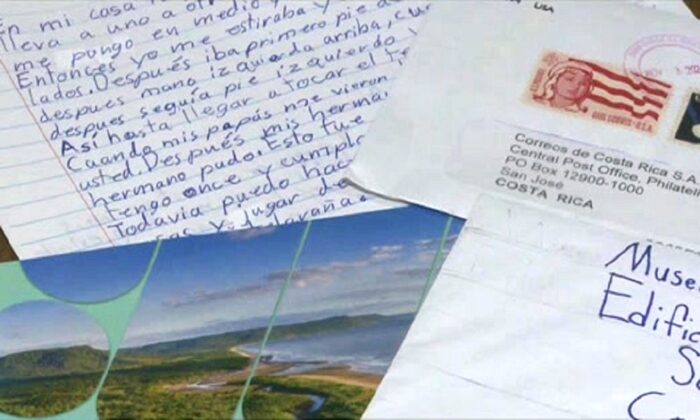 En mi casa
lleva a uno a otro
me pongo en medio y
Entonces yo me estiraba y
lados. Después iba primero pie de
despues mano izquierda arriba,
despues seguía pie izquierdo y
Así hasta llegar a tocar el te
Cuando mis papás me vieron
usted. Después mis herma
hermano pudo. Esto fue
Tengo once y cumplo
Todavia puedo hac
y jugar de
USA
GIRL SCOUTS U.S.A.
Correos de Costa Rica S.A.
Central Post Office, Philatel
PO Box 12900-1000
San José
COSTA RICA
Muse
Edific
S
C